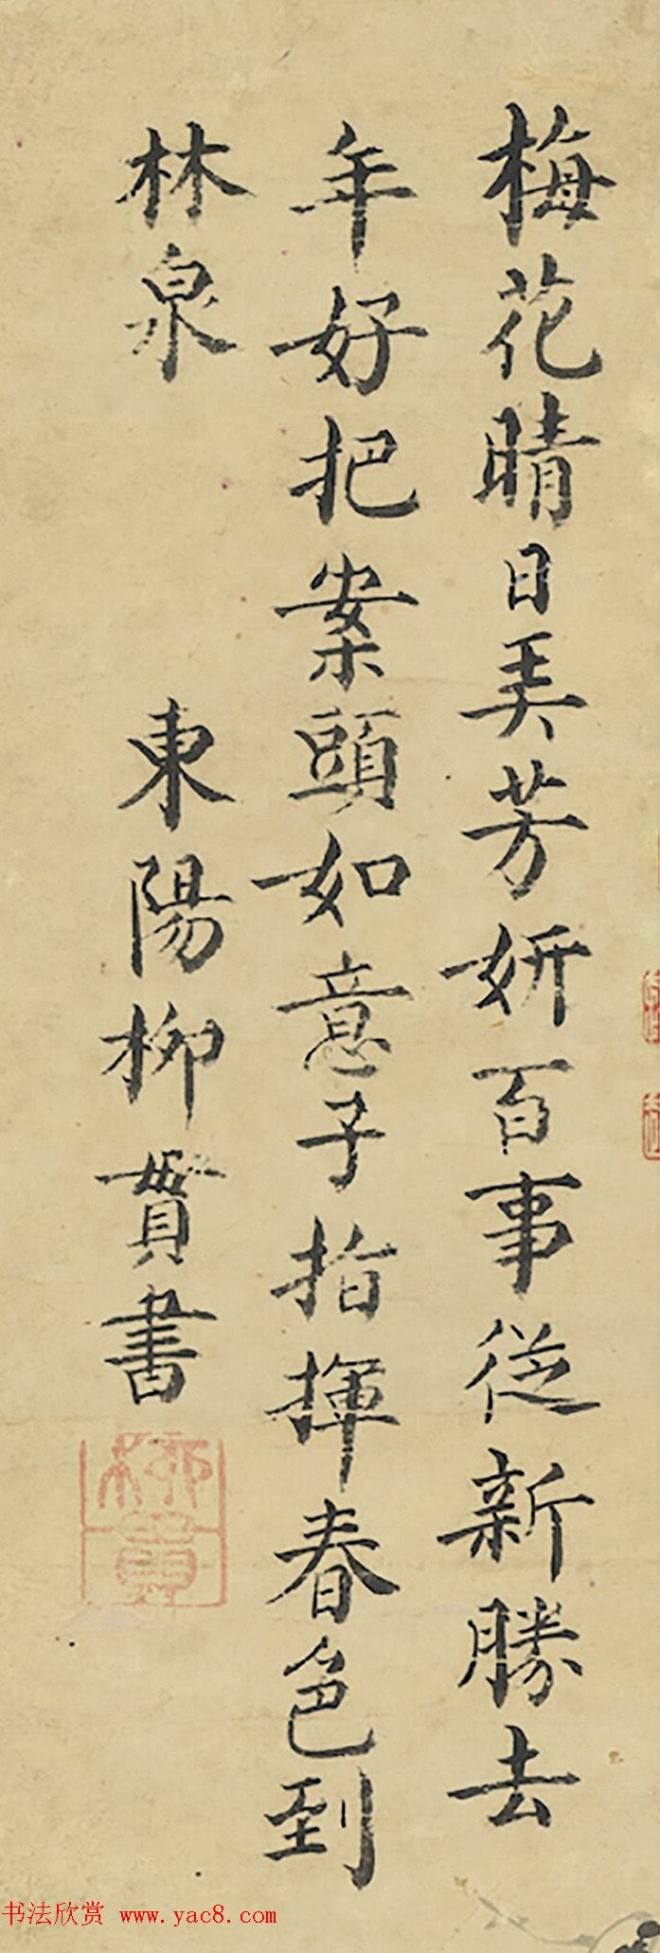 梅花晴日美芳妍百事從新勝去
年好把案頭如意子指揮春色到
林泉
東陽柳貫書
柳貫
书法欣赏 www.yac8.com